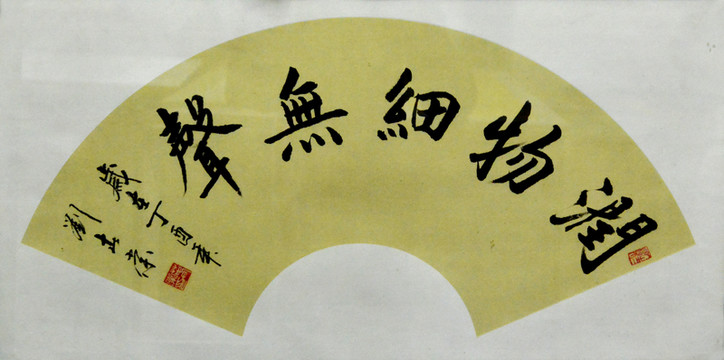 潤物細無聲
歲在丁酉年
劉